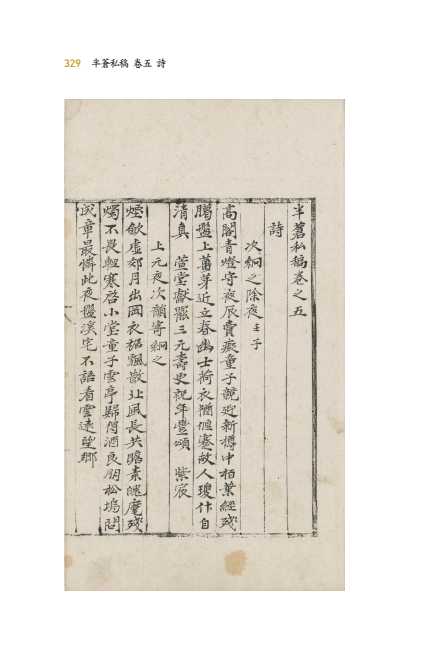 329 半蒼私稿 卷五 詩
半蒼私稿卷之五
詩
次絅之除夜 壬子
高閣青燈守夜辰賣癡童子競迎新樽中柏葉經殘
臘盤上芽近立春幽士荷衣猶偃蹇故人瓊什自
清真 萱堂獻罷三元壽更祝年豐頌 紫宸
上元夜次韻寄絅之
烟歛虛郊月出岡衣裾飄散北風長共瞻素魄麾殘
燭不畏輕寒啓小堂童子雲亭歸得酒良朋松塢問
成章最憐此夜盤溪宅不語看雲遠望鄉